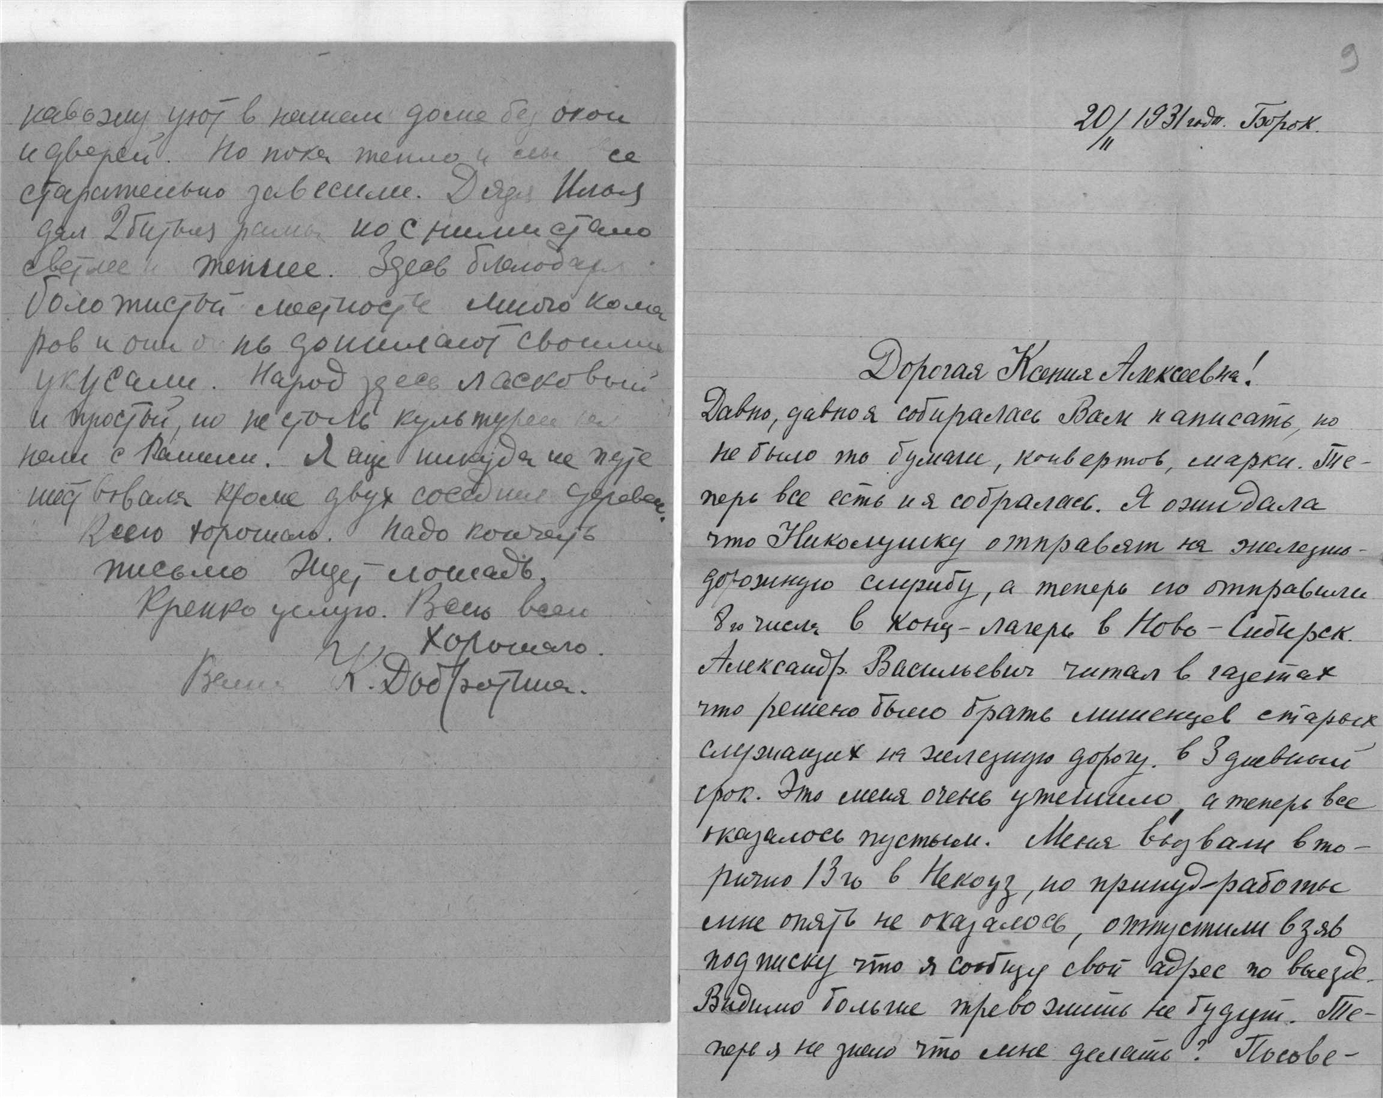 навожу уют в нашем доме без окон
и дверей. Но пока тепло и мы се
старательно завесили. Дядя Илья
дал 2 битыя рамы но с ними стало
светлее и теплее. Здесь благодаря
боложистой местности много кома
ров и они нь донимают своими
укусами. Народ здесь ласковый
и простой, но не столь культурен
нели с Вашими. Я еще никуда не путе
шествовала кроме двух соседних деревен.
Всего хорошаго. Надо кончать
письмо Ждет лошадь.
Крепко целую. Всем всем
хорошаго.
Ваша К. Добротина.
9
20/II 1931 года. Борок.
Дорогая Ксения Алексеевна!
Давно, давно я собиралась Вам написать, но
не было то бумаги, конвертов, марки. Те-
перь все есть и я собралась. Я ожидала
что Николушку отправят на железно-
дорожную службу, а теперь его отправили
8го числа в конц-лагерь в Ново-Сибирск.
Александр. Васильевич читал в газетах
что решено было брать лишенцев старых
служащих на железную дорогу. в 3 дневный
срок. Это меня очень утешило, а теперь все
оказалось пустым. Меня вызвали вто-
рично 13го в Некоуз, но принуд-работы
мне опять не оказалось, отпустили взяв
подписку что я сообщу свой адрес по выезде.
Видимо больше тревожить не будут. Те-
перь я не знаю что мне делать? Посове-